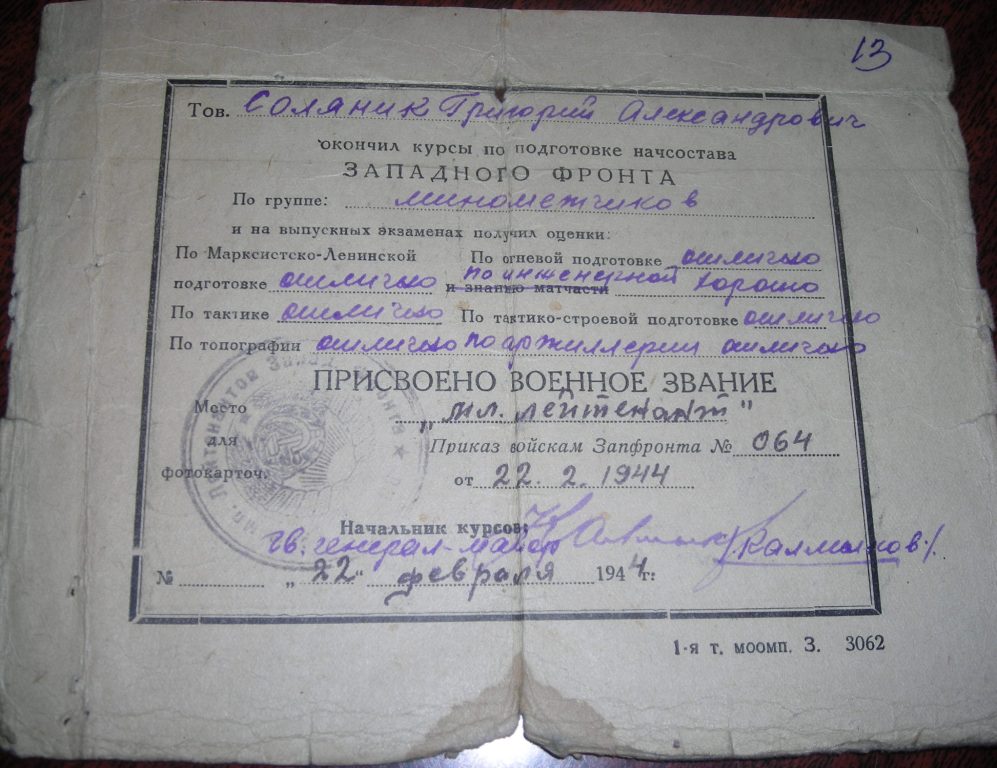 13
Тов. Соляник Григорий Александрович
окончил курсы по подготовке начсостава
ЗАПАДНОГО ФРОНТА
По группе: минометчиков
и на выпускных экзаменах получил оценки:
По Марксистско-Ленинской По огневой подготовке отлично
подготовке отлично и знанию матчасти по инженерной хорошо
По тактике отлично По тактико-строевой подготовке отлично
По топографии отлично по артиллерии отлично
ПРИСВОЕНО ВОЕННОЕ ЗВАНИЕ
Место „мл. лейтенант"
для Приказ войскам Запфронта № 064
фотокарточ. от 22. 2. 1944
Начальник курсов:
гв. генерал-майор /Калмыков/.
№ „22" февраля 1944 г.
1-я т. МООМП. З. 3062